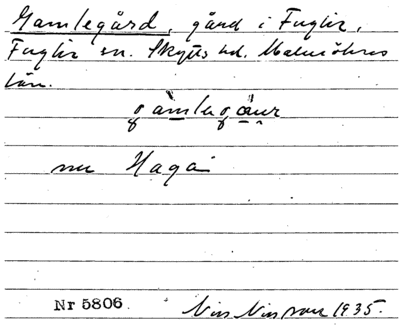 Gamlegård, gård i Fuglie,
Fuglie sn. Skytts hd. Malmöhus
län.
gamlegår
nu Haga
Nr 5806. Nils Nilsson 1935.